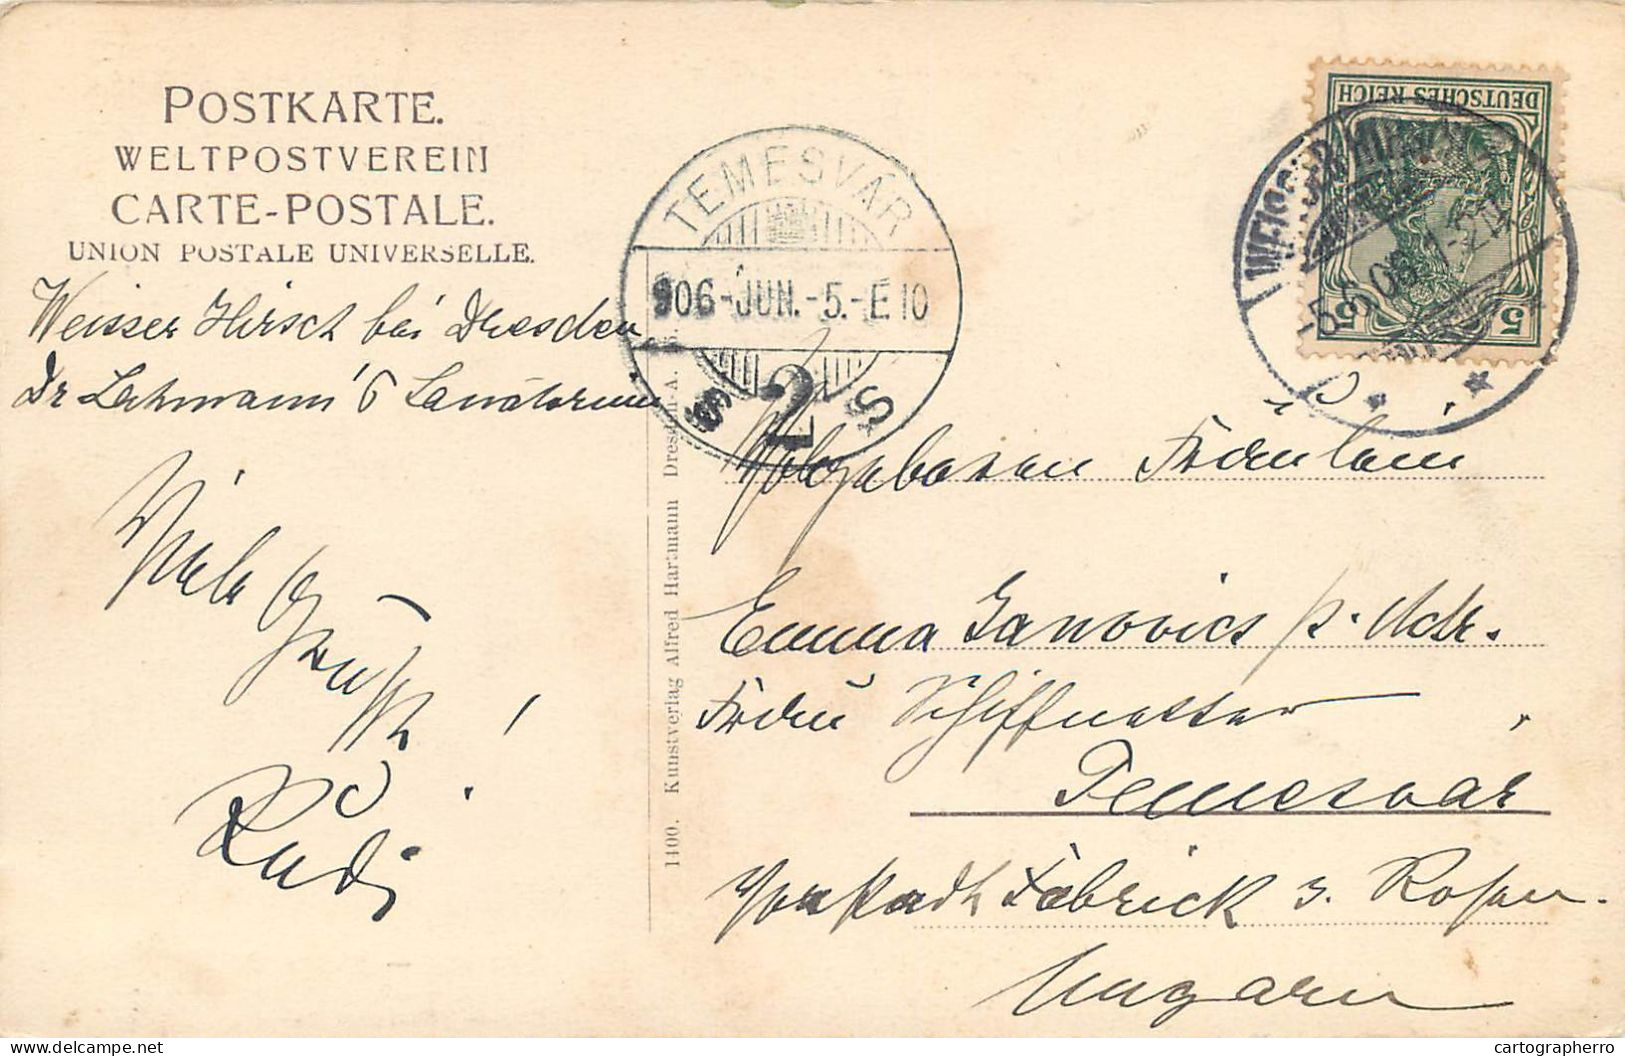 POSTKARTE.
WELTPOSTVEREIN
CARTE-POSTALE.
UNION POSTALE UNIVERSELLE.
Weisser Hirsch bei Dresden
Dr Lahmann'S Sanatorium
Viele
Grüsse
!
Rudi
1400. Kunstverlag Alfred Hartmann Dresden-A.
TEMESVÁR
906-JUN.-5.-E 10
2 S
DEUTSCHES REICH
5 5
WEISSER HIRSCH
Wohlgeboren Fräulein
Emma Janovics p. Adr.
Frau Schiffnetter
Temesvar
Vorstadt Fabrick 3. Rosen
Ungarn
delcampe.net
cartographerro